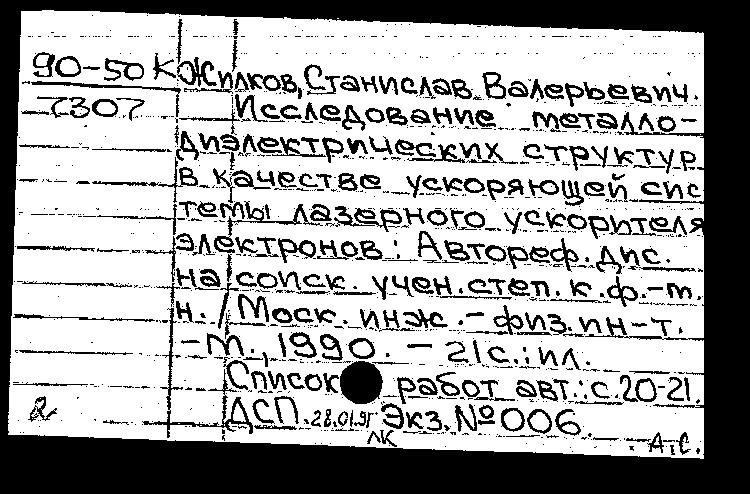 90-50 К Жилков, Станислав Валерьевич.
7307 Исследование металло-
диэлектрических структур
в качестве ускоряющей сис
темы лазерного ускорителя
электронов: Автореф. дис.
на соиск. учен. степ. к. ф.-м.
н. / Моск. инж.-физ. ин-т.
-М., 1990. - 21с.: ил.
Список работ авт.: с. 20-21.
2 ДСП. 28.01.91 Экз. №006.
ЛК
А.С.